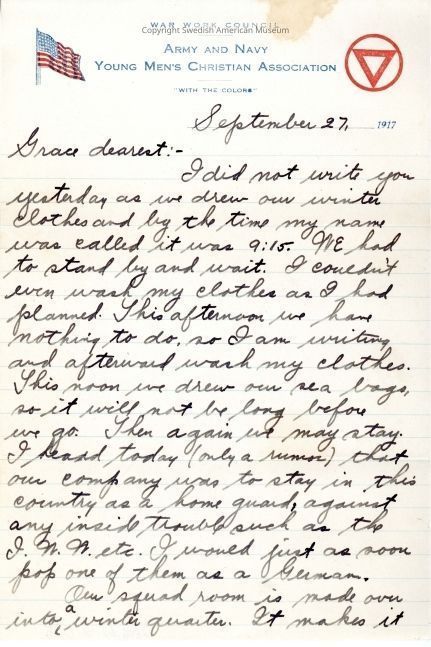 WAR WORK COUNCIL
Copyright Swedish American Museum
ARMY AND NAVY
YOUNG MEN'S CHRISTIAN ASSOCIATION
"WITH THE COLORS"
September 27, 1917
Grace dearest:-
I did not write you
yesterday as we drew our winter
clothes and by the time my name
was called it was 9:15. WE had
to stand by and wait. I couldn't
even wash my clothes as I had
planned. This afternoon we have
nothing to do, so I am writing
and afterward wash my clothes.
This noon we drew our sea bags,
so it will not be long before
we go. Then again we may stay.
I heard today (only a rumor) that
our company was to stay in this
country as a home guard, against
any inside trouble such as the
I. W. W. etc. I would just as soon
pop one of them as a German.
Our squad room is made over
into a winter quarter. It makes it